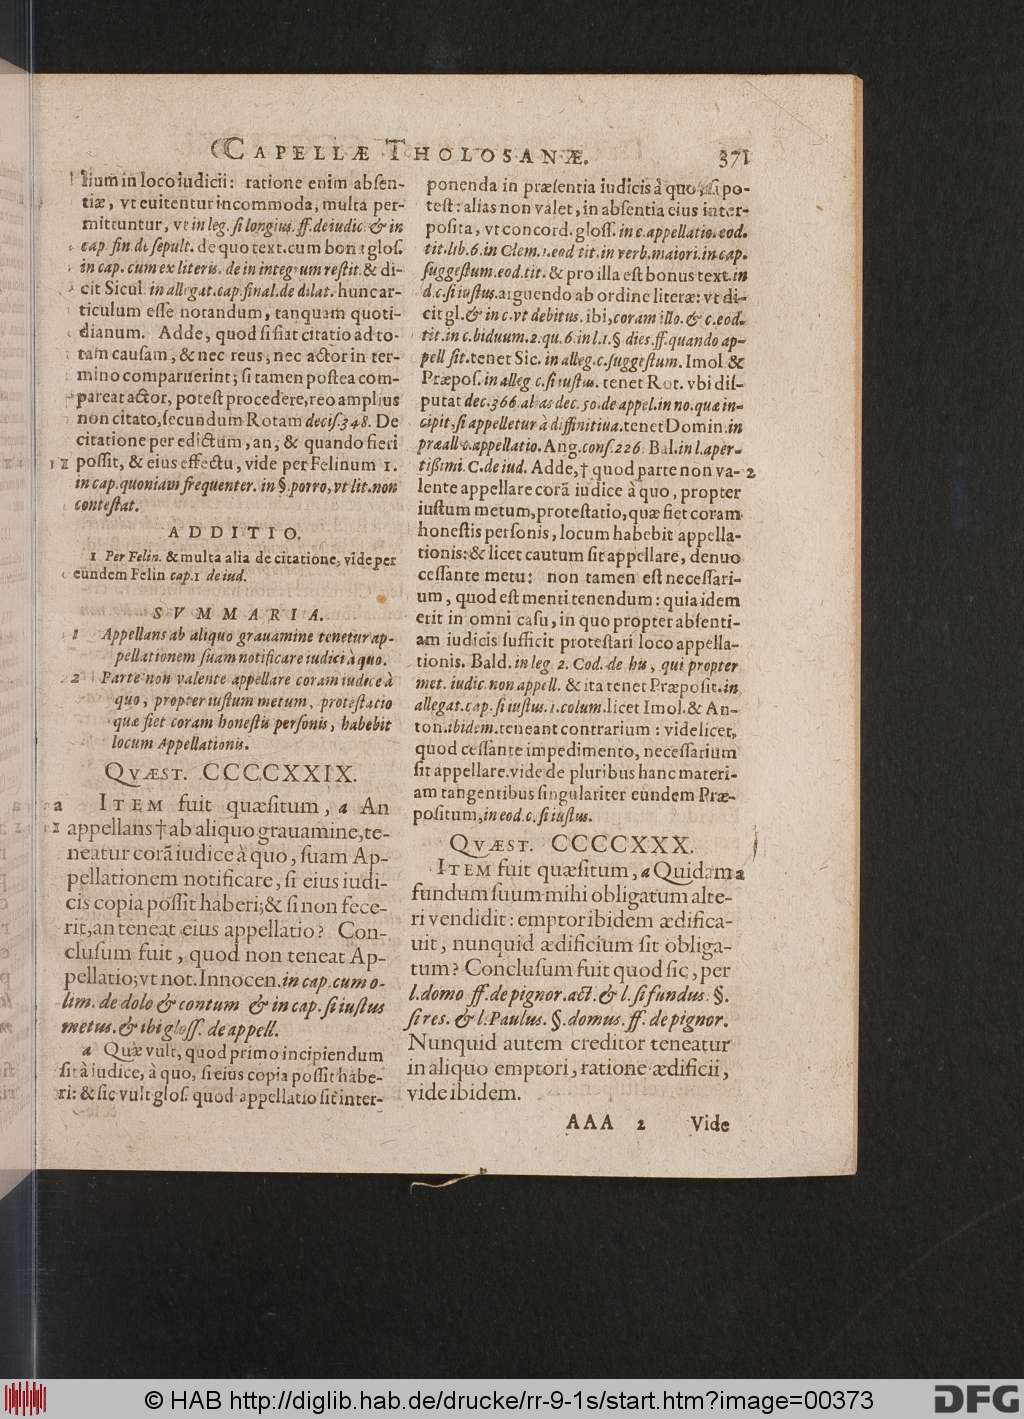 CAPELLÆ THOLOSANÆ. 371
lium in loco iudicii: ratione enim absen-
tiæ, vt euitentur incommoda, multa per-
mittuntur, vt in leg. si longius. ff. de iudic. & in
cap. fin. de sepult. de quo text. cum bona glos.
in cap. cum ex literis. de in integrum restit. & di-
cit Sicul. in allegat. cap. final. de dilat. hunc ar-
ticulum esse notandum, tanquam quoti-
dianum. Adde, quod si fiat citatio ad to-
tam causam, & nec reus, nec actor in ter-
mino comparuerint; si tamen postea com-
pareat actor, potest procedere, reo amplius
non citato, secundum Rotam decis. 348. De
citatione per edictum, an, & quando fieri
11 possit, & eius effectu, vide per Felinum 1.
in cap. quoniam frequenter. in §. porro, vt lit. non
contestat.
ADDITIO.
1 Per Felin. & multa alia de citatione, vide per
eundem Felin cap. 1 de iud.
SVMMARIA.
1 Appellans ab aliquo grauamine tenetur ap-
pellationem suam notificare iudici à quo.
2 Parte non valente appellare coram iudice à
quo, propter iustum metum, protestatio
quæ fiet coram honestis personis, habebit
locum Appellationis.
QVÆST. CCCCXXIX.
a ITEM fuit quæsitum, a An
1 appellans † ab aliquo grauamine, te-
neatur corã iudice à quo, suam Ap-
pellationem notificare, si eius iudi-
cis copia possit haberi; & si non fece-
rit, an teneat eius appellatio? Con-
clusum fuit, quod non teneat Ap-
pellatio; vt not. Innocen. in cap. cum o-
lim. de dolo & contum & in cap. si iustus
metus. & ibi gloss. de appell.
a Quæ vult, quod primo incipiendum
sit à iudice, à quo, si eius copia possit habe-
ri: & sic vult glos. quod appellatio sit inter-
ponenda in præsentia iudicis à quo, si po-
test: alias non valet, in absentia eius inter-
posita, vt concord. gloss. in c. appellatio. eod.
tit. lib. 6. in Clem. 1. eod tit. in verb. maiori. in cap.
suggestum. eod. tit. & pro illa est bonus text. in
d. c. si iustus. arguendo ab ordine literæ: vt di-
cit gl. & in c. vt debitus. ibi, coram illo. & c. eod.
tit. in c. biduum. 2. qu. 6. in l. 1. § dies. ff. quando ap-
pell sit. tenet Sic. in alleg. c. suggestum. Imol. &
Præpos. in alleg c. si iustus. tenet Rot. vbi dis-
putat dec. 366. alias dec. 50. de appel. in no. quæ in-
cipit, si appelletur à diffinitiua. tenet Domin. in
præall. c. appellatio. Ang. cons. 226. Bal. in l. aper-
tißimi. C. de iud. Adde, † quod parte non va- 2
lente appellare corã iudice à quo, propter
iustum metum, protestatio, quæ fiet coram
honestis personis, locum habebit appella-
tionis: & licet cautum sit appellare, denuo
cessante metu: non tamen est necessari-
um, quod est menti tenendum: quia idem
erit in omni casu, in quo propter absenti-
am iudicis sufficit protestari loco appella-
tionis. Bald. in leg. 2. Cod. de his, qui propter
met. iudic. non appell. & ita tenet Præposit. in
allegat. cap. si iustus. 1. colum. licet Imol. & An-
ton. ibidem. teneant contrarium: videlicet,
quod cessante impedimento, necessarium
sit appellare. vide de pluribus hanc materi-
am tangentibus singulariter eundem Præ-
positum, in eod. c. si iustus.
QVÆST. CCCCXXX.
ITEM fuit quæsitum, a Quidam a
fundum suum mihi obligatum alte-
ri vendidit: emptor ibidem ædifica-
uit, nunquid ædificium sit obliga-
tum? Conclusum fuit quod sic, per
l. domo ff. de pignor. act. & l. si fundus. §.
si res. & l. Paulus. §. domus. ff. de pignor.
Nunquid autem creditor teneatur
in aliquo emptori, ratione ædificii,
vide ibidem.
AAA 2 Vide
© HAB http://diglib.hab.de/drucke/rr-9-1s/start.htm?image=00373
DFG